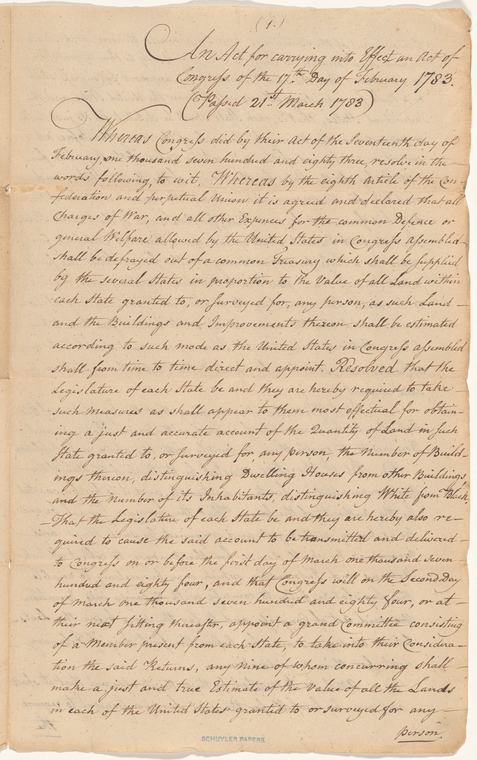 (1.)
An Act for carrying into Effect an Act of
Congress of the 17th Day of February 1783.
(Passed 21st March 1783)
Whereas Congress did by their Act of the Seventeenth day of
February, one thousand seven hundred and eighty three, resolve in the
words following, to wit, Whereas by the eighth article of the Con-
federation and perpetual Union it is agreed and declared that all
Charges of War, and all other Expences for the common Defence or
general Welfare allowed by the United States in Congress assembled
shall be defrayed out of a common Treasury which shall be supplied
by the several States in proportion to the Value of all Land within
each State granted to, or Surveyed for, any person, as such Land
and the Buildings and Improvements thereon shall be estimated
according to such mode as the United States in Congress assembled
shall from time to time direct and appoint. Resolved that the
Legislature of each State be and they are hereby required to take
such Measures as shall appear to them most effectual for obtain-
ing a just and accurate account of the Quantity of Land in such
State granted to, or surveyed for any person, the Number of Build-
ings thereon, distinguishing Dwelling Houses from other Buildings
and the Number of its Inhabitants, distinguishing White from Black.
That the Legislature of each State be and they are hereby also re-
quired to cause the said account to be transmitted and delivered
to Congress on or before the first day of March one thousand seven
hundred and eighty four, and that Congress will on the Second Day
of March one thousand seven hundred and eighty four, or at
their next sitting thereafter, appoint a grand Committee consisting
of a Member present from each State, to take into their Considera-
tion the said Returns, any Nine of whom concurring shall
make a just and true Estimate of the Value of all the Lands
in each of the United States granted to or surveyed for any
Person
SCHUYLER PAPERS